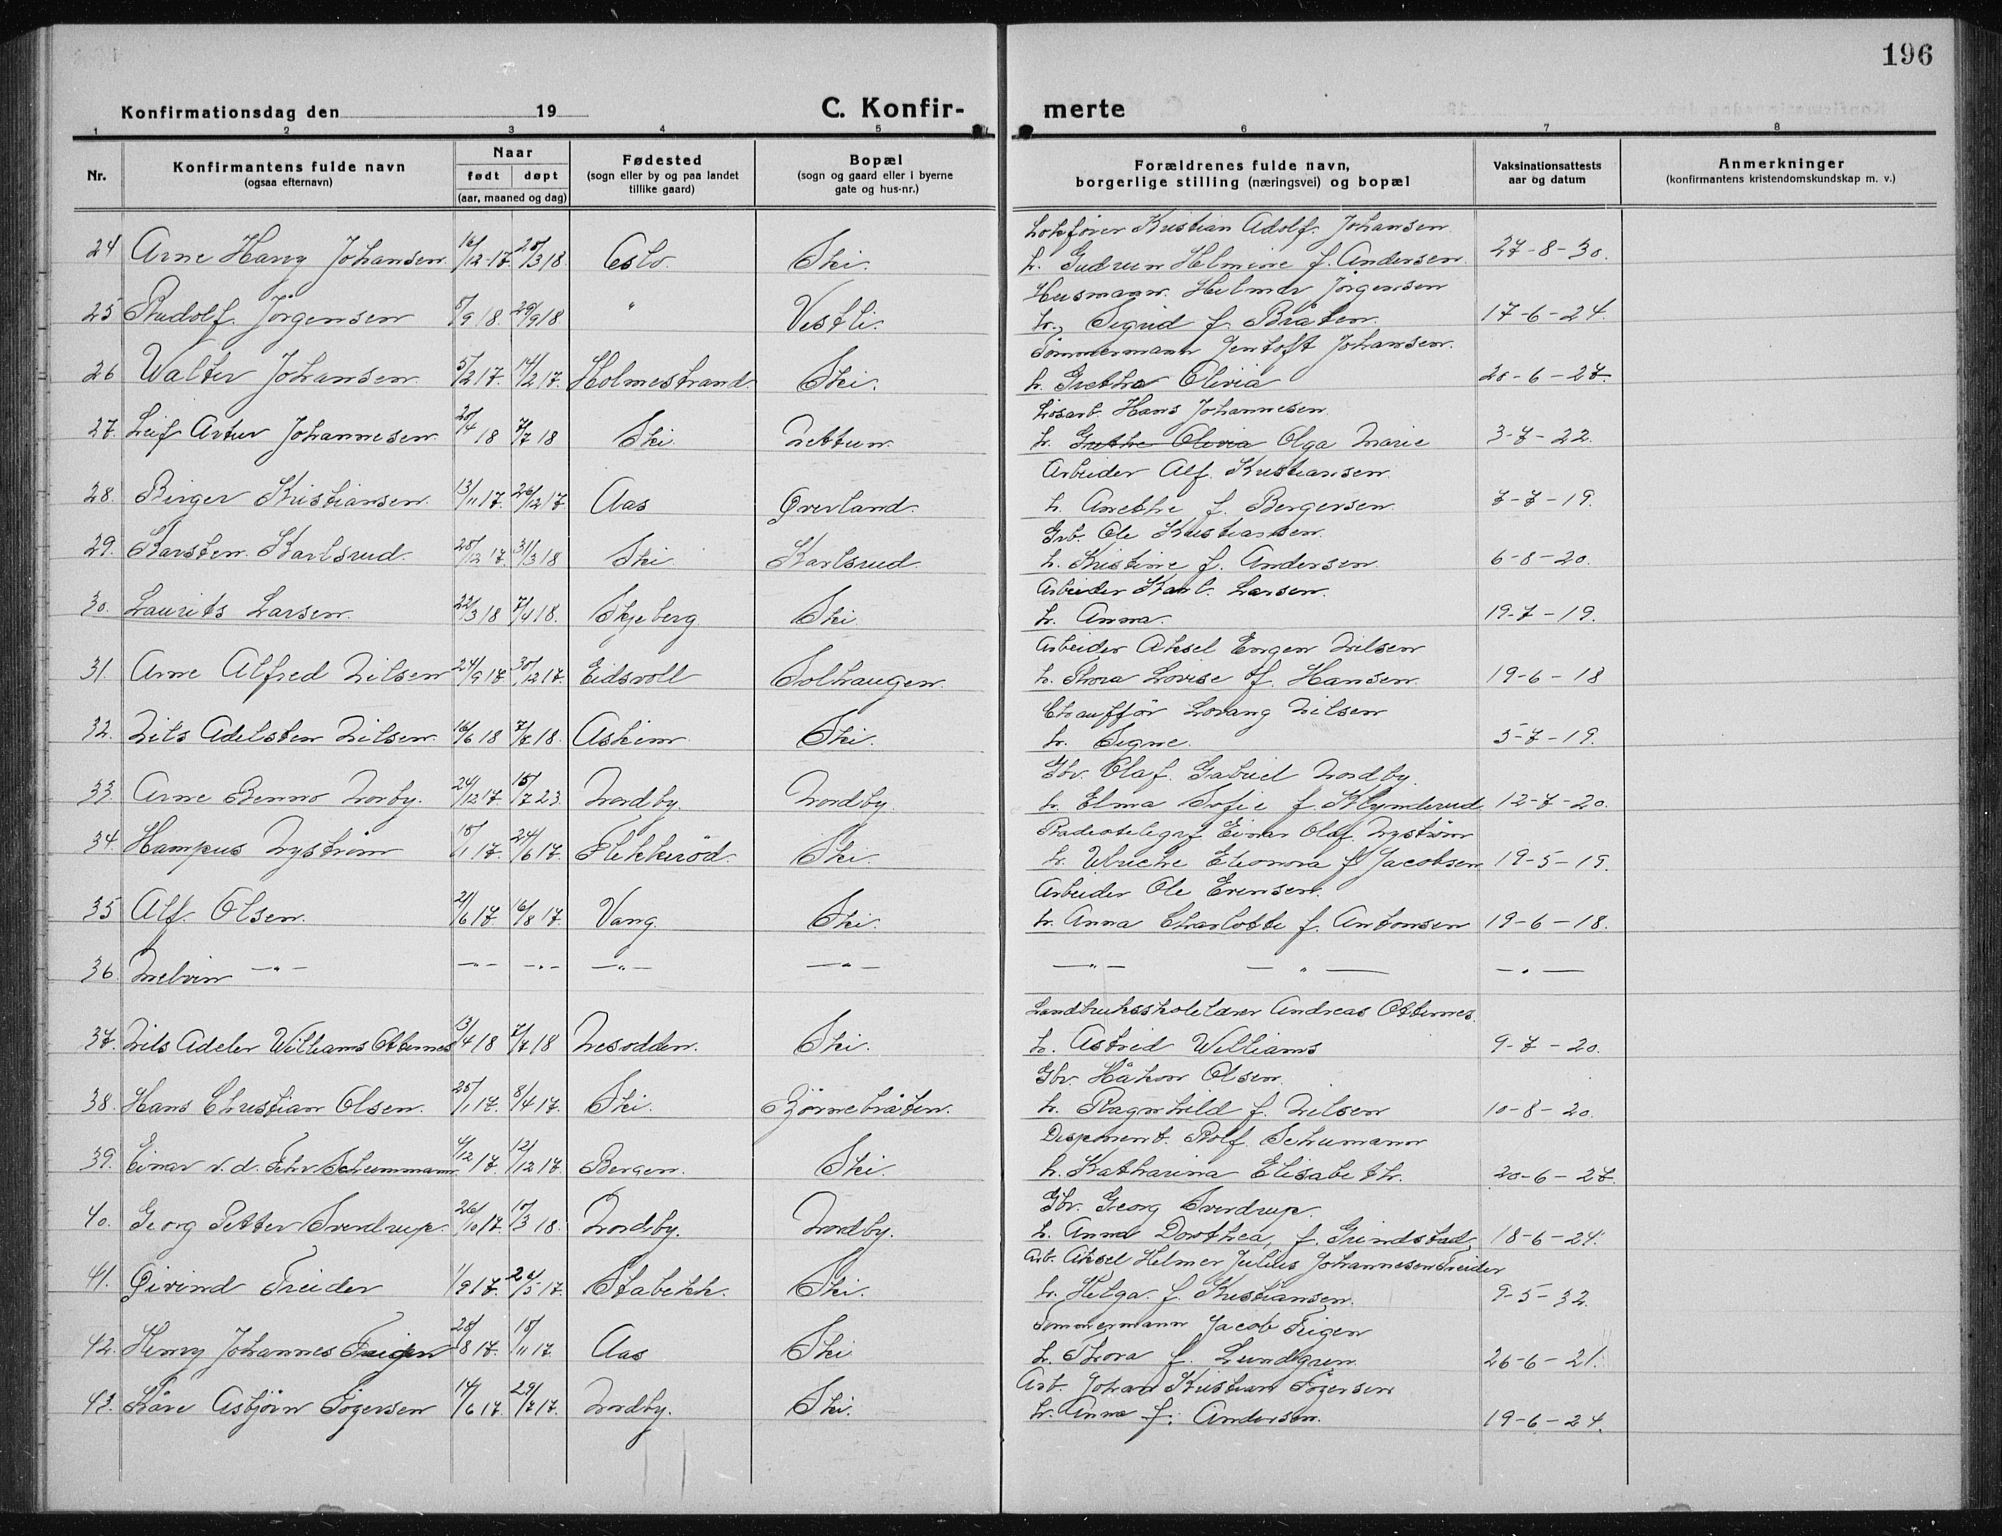 196
Konfirmationsdag den 19 C. Konfir- merte
1 2 3 4 5 6 7 8
Nr. Konfirmantens fulde navn (ogsaa efternavn) Naar født døpt (aar, maaned og dag) Fødested (sogn eller by og paa landet tillike gaard) Bopæl (sogn og gaard eller i byerne gate og hus-nr.) Forældrenes fulde navn, borgerlige stilling (næringsvei) og bopæl Vaksinationsattests aar og datum Anmerkninger (konfirmantens kristendomskundskap m. v.)
Lokfører Kristian Adolf Johansen
24 Arne Harry Johansen 16/12-17. 20/3 18. Oslo. Ski. h. Gudrun Helmine f. Andersen. 27-8-30.
Husmann. Helmer Jørgensen
25 Rudolf. Jörgensen 5/9 18. 29/9 18 " Vestli. h., Sigrid f. Bråten. 17-6-24.
Tömmermann Gentoft Johansen.
26 Walter Johansen. 5/2 17. 14/2 17. Holmestrand. Ski. h. Grethe Olivia 20-6-27.
Løsarb. Hans Johannesen.
27. Leif Artur Johannesen. 20/4 18 7/7 18 Ski. Nettum h. Grethe Olivia Olga Marie 3-7-22.
Arbeider Alf. Kristiansen.
28. Birger Kristiansen. 13/11 17. 26/12 17 Aas Øverland. h. Anethe f. Bergersen. 7-7-19.
Grb. Ole Kristiansen.
29. Karsten. Karlsrud. 20/12 17. 31/3 18 Ski. Karlsrud. h. Kristine f. Andersen. 6-8-20.
Arbeider Karl. Larsen.
30. Laurits Larsen. 22/3 18 7/4 18. Skjeberg Ski. h. Anna. 19-7-19.
Arbeider Aksel Eugen Nilsen
31. Arne Alfred Nilsen 24/9 17 30/12 17. Eidsvoll Solhaugen. h. Thora Lovise f. Hansen. 19-6-18
Chauffør Lorang Nilsen
32. Nils Adelsten Nilsen. 16/6 18 7/7 18. Askim. Ski. h. Signe. 5-7-19.
Gbr. Olaf. Gabriel Nordby.
33. Arne Benno Norby. 24/12 17. 15/7 23. Nordby. Nordby. h. Elma Sofie f. Klynderud 12-7-20.
Radiotelegraf Einar Olaf. Nystrøm
34. Hampus Nystrøm 10/1 17. 24/6 17. Flekkeröd. Ski. h. Ulriche Eleonora f. Jacobsen 19-5-19.
Arbeider Ole Evensen.
35 Alf. Olsen. 2/6 17. 16/8 17. Vang. Ski. h. Anna Charlotte f. Antonsen 19-6-18.
36 Melvin —"— —"— —"— —"— —"— —"— —"— —"—
Landbruksskolelærer Andreas Otternes.
37. Nils Adeler Williams Otternes 13/4 18 7/7 18 Nesodden. Ski. h. Astrid Williams 9-7-20.
Gbr. Håkon Olsen.
38. Hans Christian Olsen. 25/1 17. 8/4 17. Ski. Bjørnebråten. h. Ragnhild f. Nilsen 10-8-20.
Disponent. Rolf. Schumann
39. Einar v. d. Fehr Schummann 4/12 17. 12/12 17. Bergen. Ski. h. Katharina Elisabeth. 20-6-27.
Gbr. Georg Sverdrup.
40. Georg Petter Sverdrup. 26/10 17. 10/3 18. Nordby. Nordby. h. Anna Dorthea, f. Grindstad, 18-6-24.
Arb. Aksel Helmer Julius Johannesen Treider
41. Øivind Treider 1/9 17. 24/5 17. Stabekk. Ski. h. Helga f. Kristiansen. 9-5-32.
Tømmermann Jacob Teigen
42. Henry Johannes Teigen 28/8 17. 18/11 17. Aas Ski h. Thora f. Lundgren. 26-6-21.
Arb. Johan Kristian Tozersen
43. Kåre Asbjørn Tozersen 14/6 17. 29/7 17. Nordby. Ski. h. Anna f. Andersen. 19-6-24.